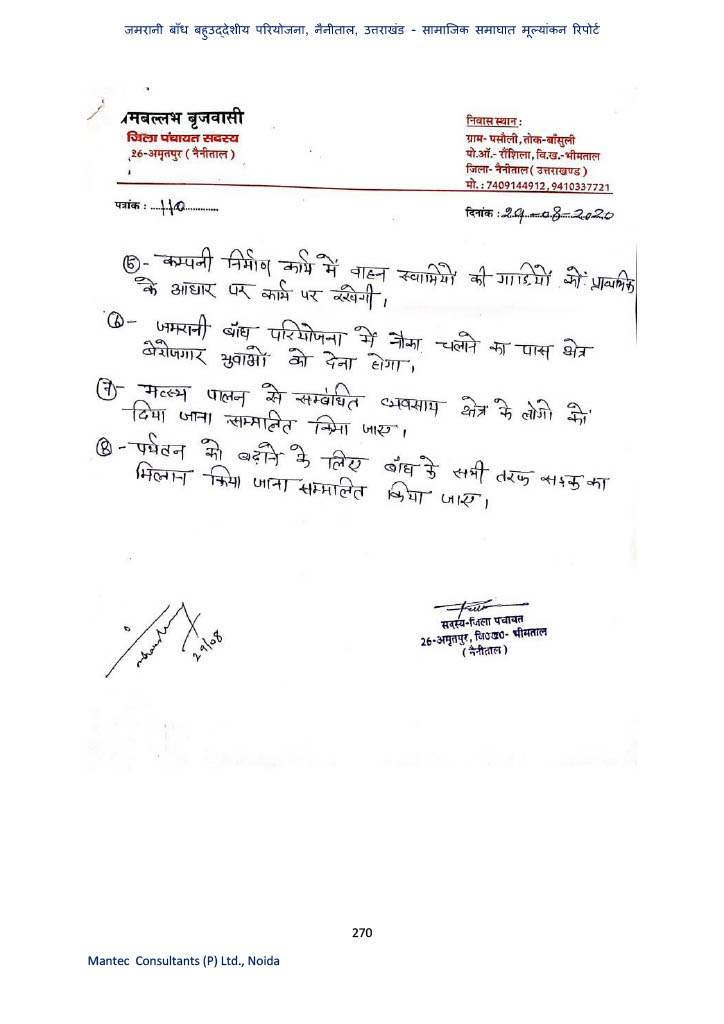 जमरानी बाँध बहुउद्देशीय परियोजना, नैनीताल, उत्तराखंड - सामाजिक समाघात मूल्यांकन रिपोर्ट
मबल्लभ बृजवासी
जिला पंचायत सदस्य
26-अमृतपुर ( नैनीताल )
निवास स्थान :
ग्राम- पसौली, तोक-बाँसुली
पो.ऑ.- रौशिला, वि.ख.-भीमताल
जिला- नैनीताल ( उत्तराखण्ड )
मो. : 7409144912, 9410337721
पत्रांक : ....110.............
दिनांक : 29-08-2020
⑤- कम्पनी निर्माण कार्य में वाहन स्वामियों की गाडियों को प्राथमिक
के आधार पर कार्य पर रखेगी।
⑥- जमरानी बाँध परियोजना में नौका चलाने का पास क्षेत्र
बेरोजगार युवाओं को देना होगा।
⑦- मत्स्य पालन से सम्बंधित व्यवसाय क्षेत्र के लोगो को
दिया जाना सम्मालित किया जाए।
⑧- पर्यटन को बढ़ाने के लिए बाँध के सभी तरफ सड़क का
मिलान किया जाना सम्मालित किया जाए।
29/08
सदस्य-जिला पंचायत
26-अमृतपुर, वि०ख०- भीमताल
( नैनीताल )
270
Mantec Consultants (P) Ltd., Noida